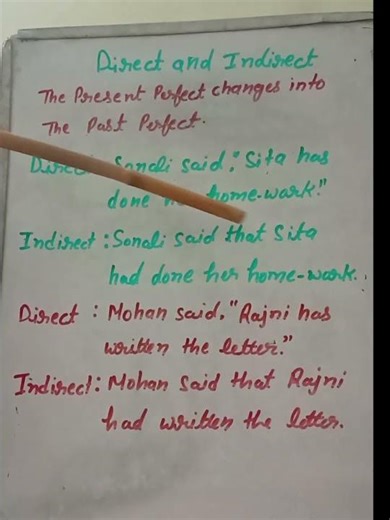 Direct and Indirect
The Present Perfect changes into
The Past Perfect.
Direct: Sonali said, "Sita has
done her home-work."
Indirect: Sonali said that Sita
had done her home-work.
Direct : Mohan said, "Rajni has
written the letter."
Indirect: Mohan said that Rajni
had written the letter.